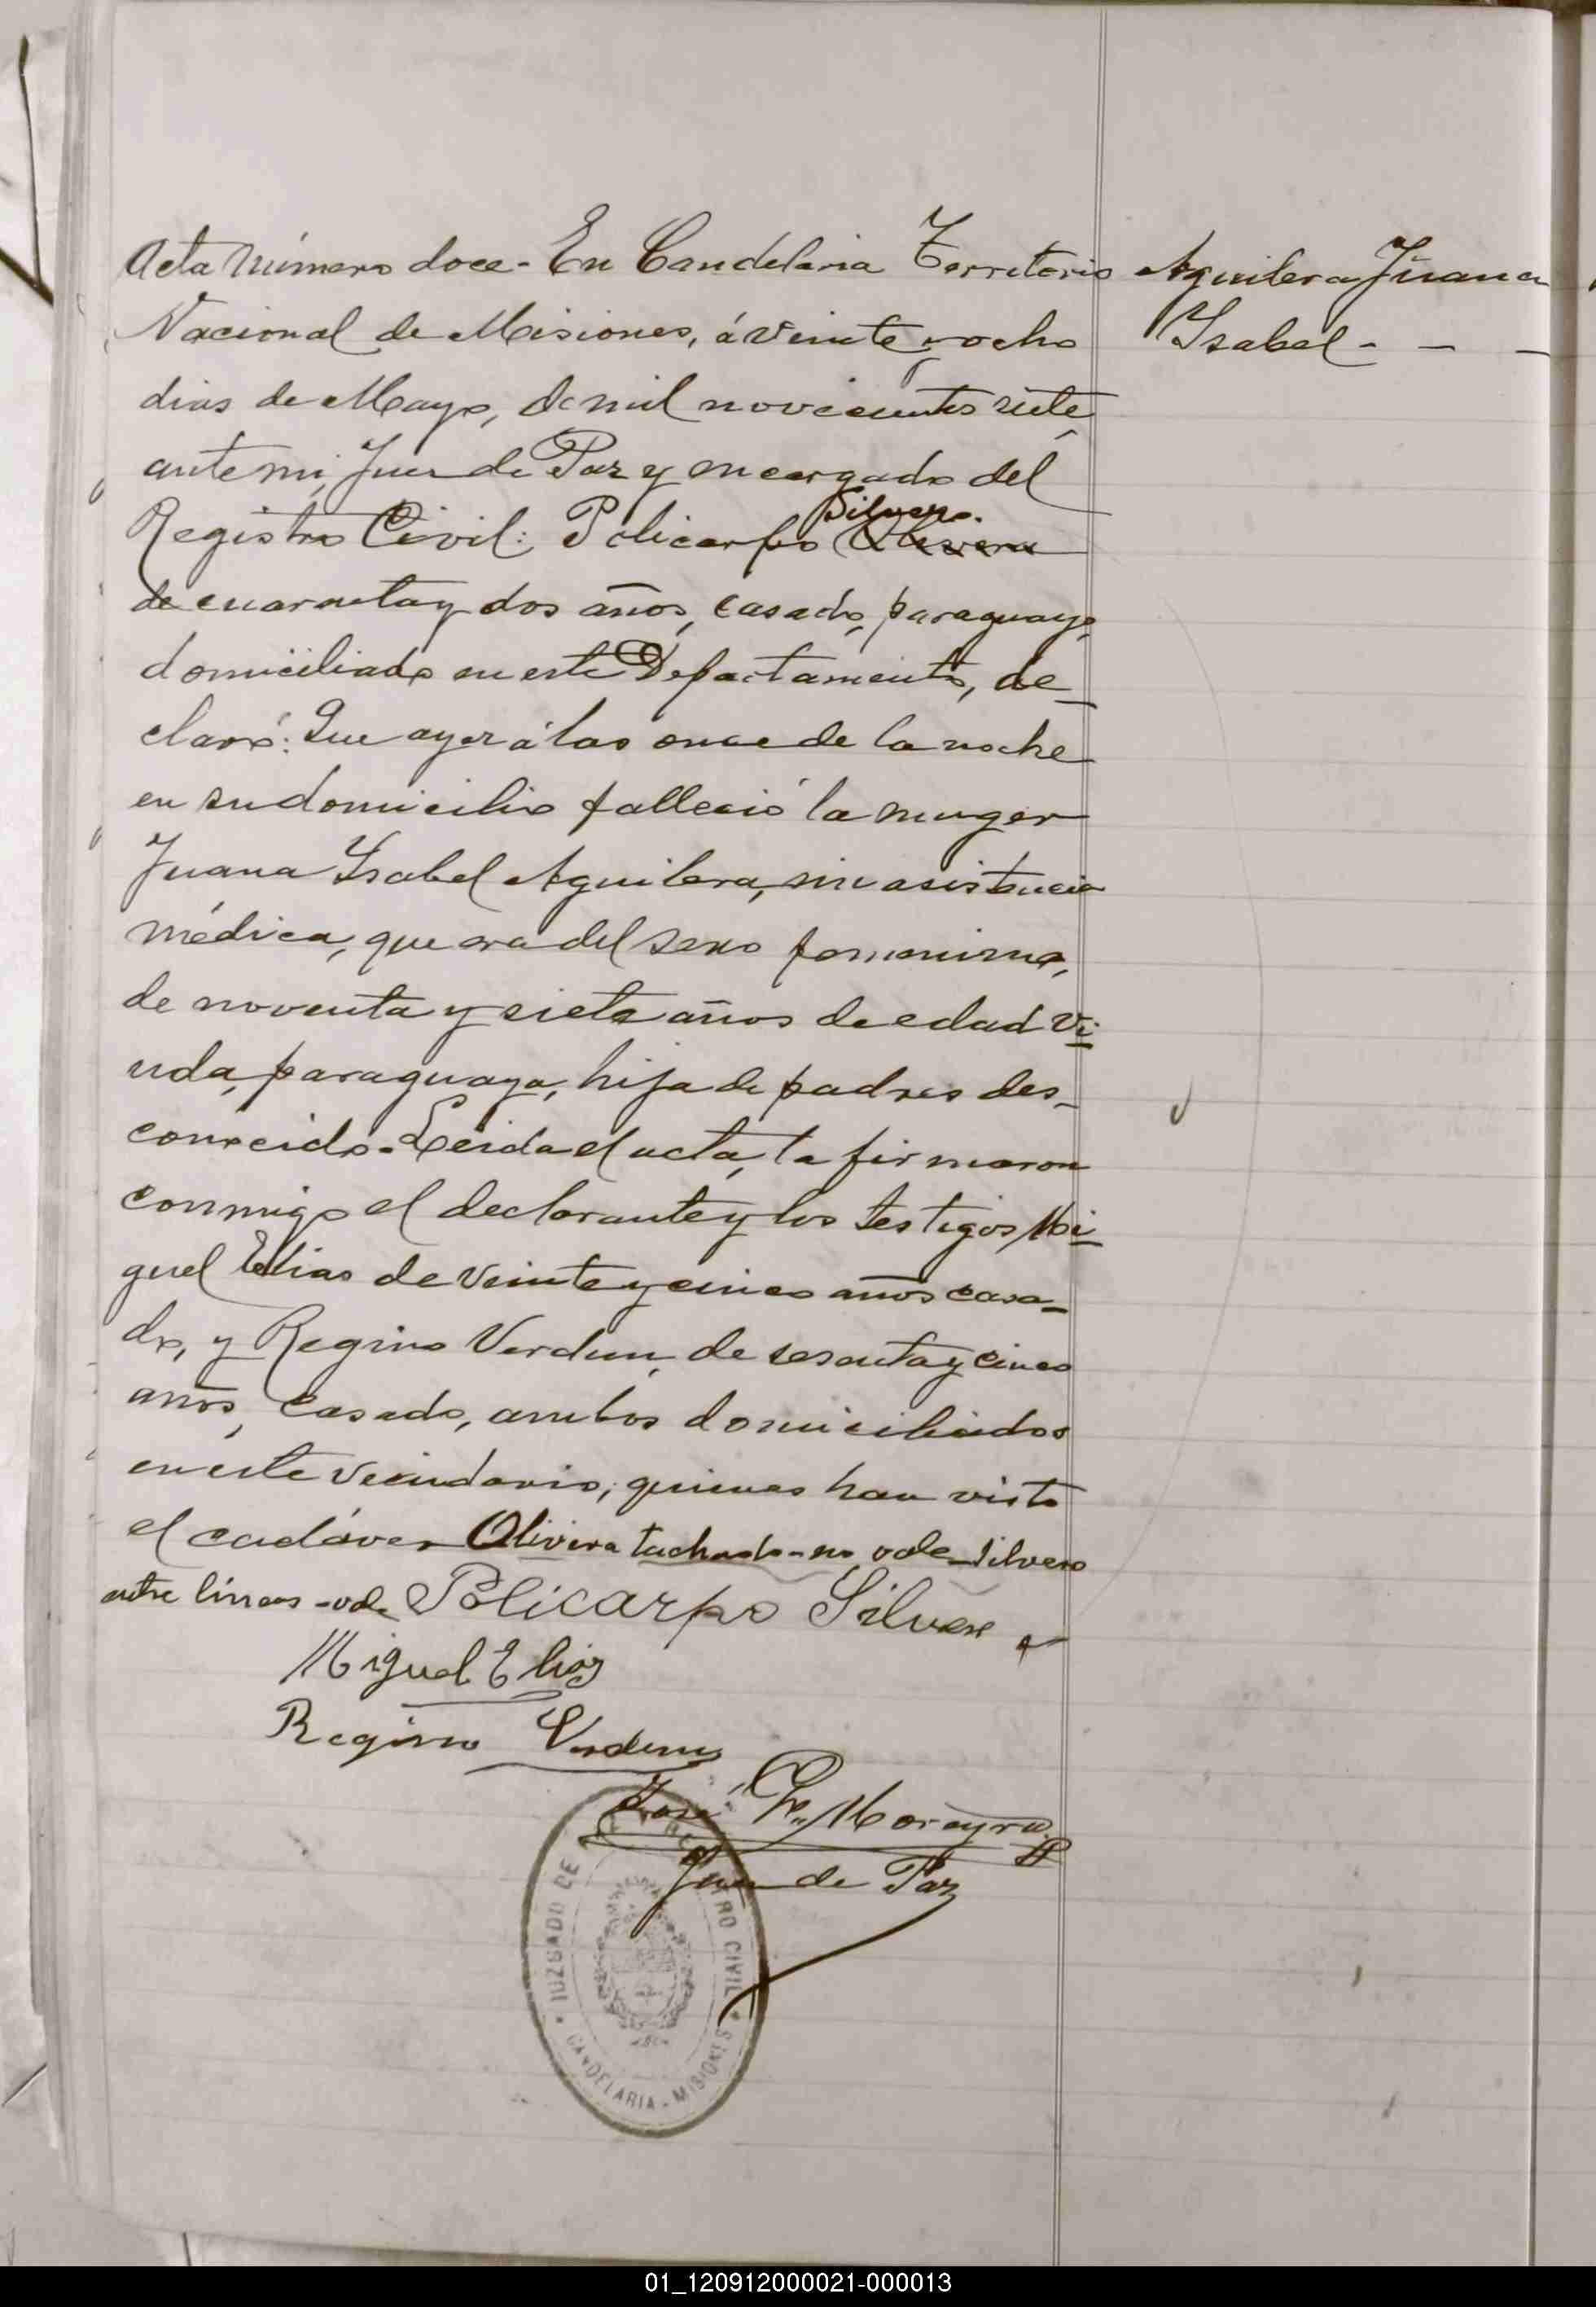 Acta Número doce - En Candelaria Territorio
Nacional de Misiones, á veinte y ocho
dias de Mayo, de mil novecientos siete,
ante mi, Juez de Paz y encargado del
Silvero.
Registro Civil: Policarpo Olivera
de cuarenta y dos años, casado, paraguayo,
domiciliado en este Departamento, de_
claró: Que ayer á las once de la noche
en su domicilio falleció la muger
Juana Ysabel Aguilera, sin asistencia
médica, que era del sexo femenino,
de noventa y siete años de edad vi_
uda, paraguaya, hija de padres des_
conocido. Leida el acta, la firmaron
conmigo el declarante y los testigos Mi_
guel Elias de veinte y cinco años casa_
do, y Regino Verdun, de sesenta y cinco
años, casado, ambos domiciliados
en este vecindario; quienes han visto
el cadáver Olivera tachado-no vale_Silvero
entre lineas-vale Policarpo Silvero
Miguel Elias
Regino Verdun
José Moreyra
Juez de Paz
Aguilera Juana
Ysabel - - -
JUZGADO DE REGISTRO CIVIL
CANDELARIA - MISIONES
01_120912000021-000013